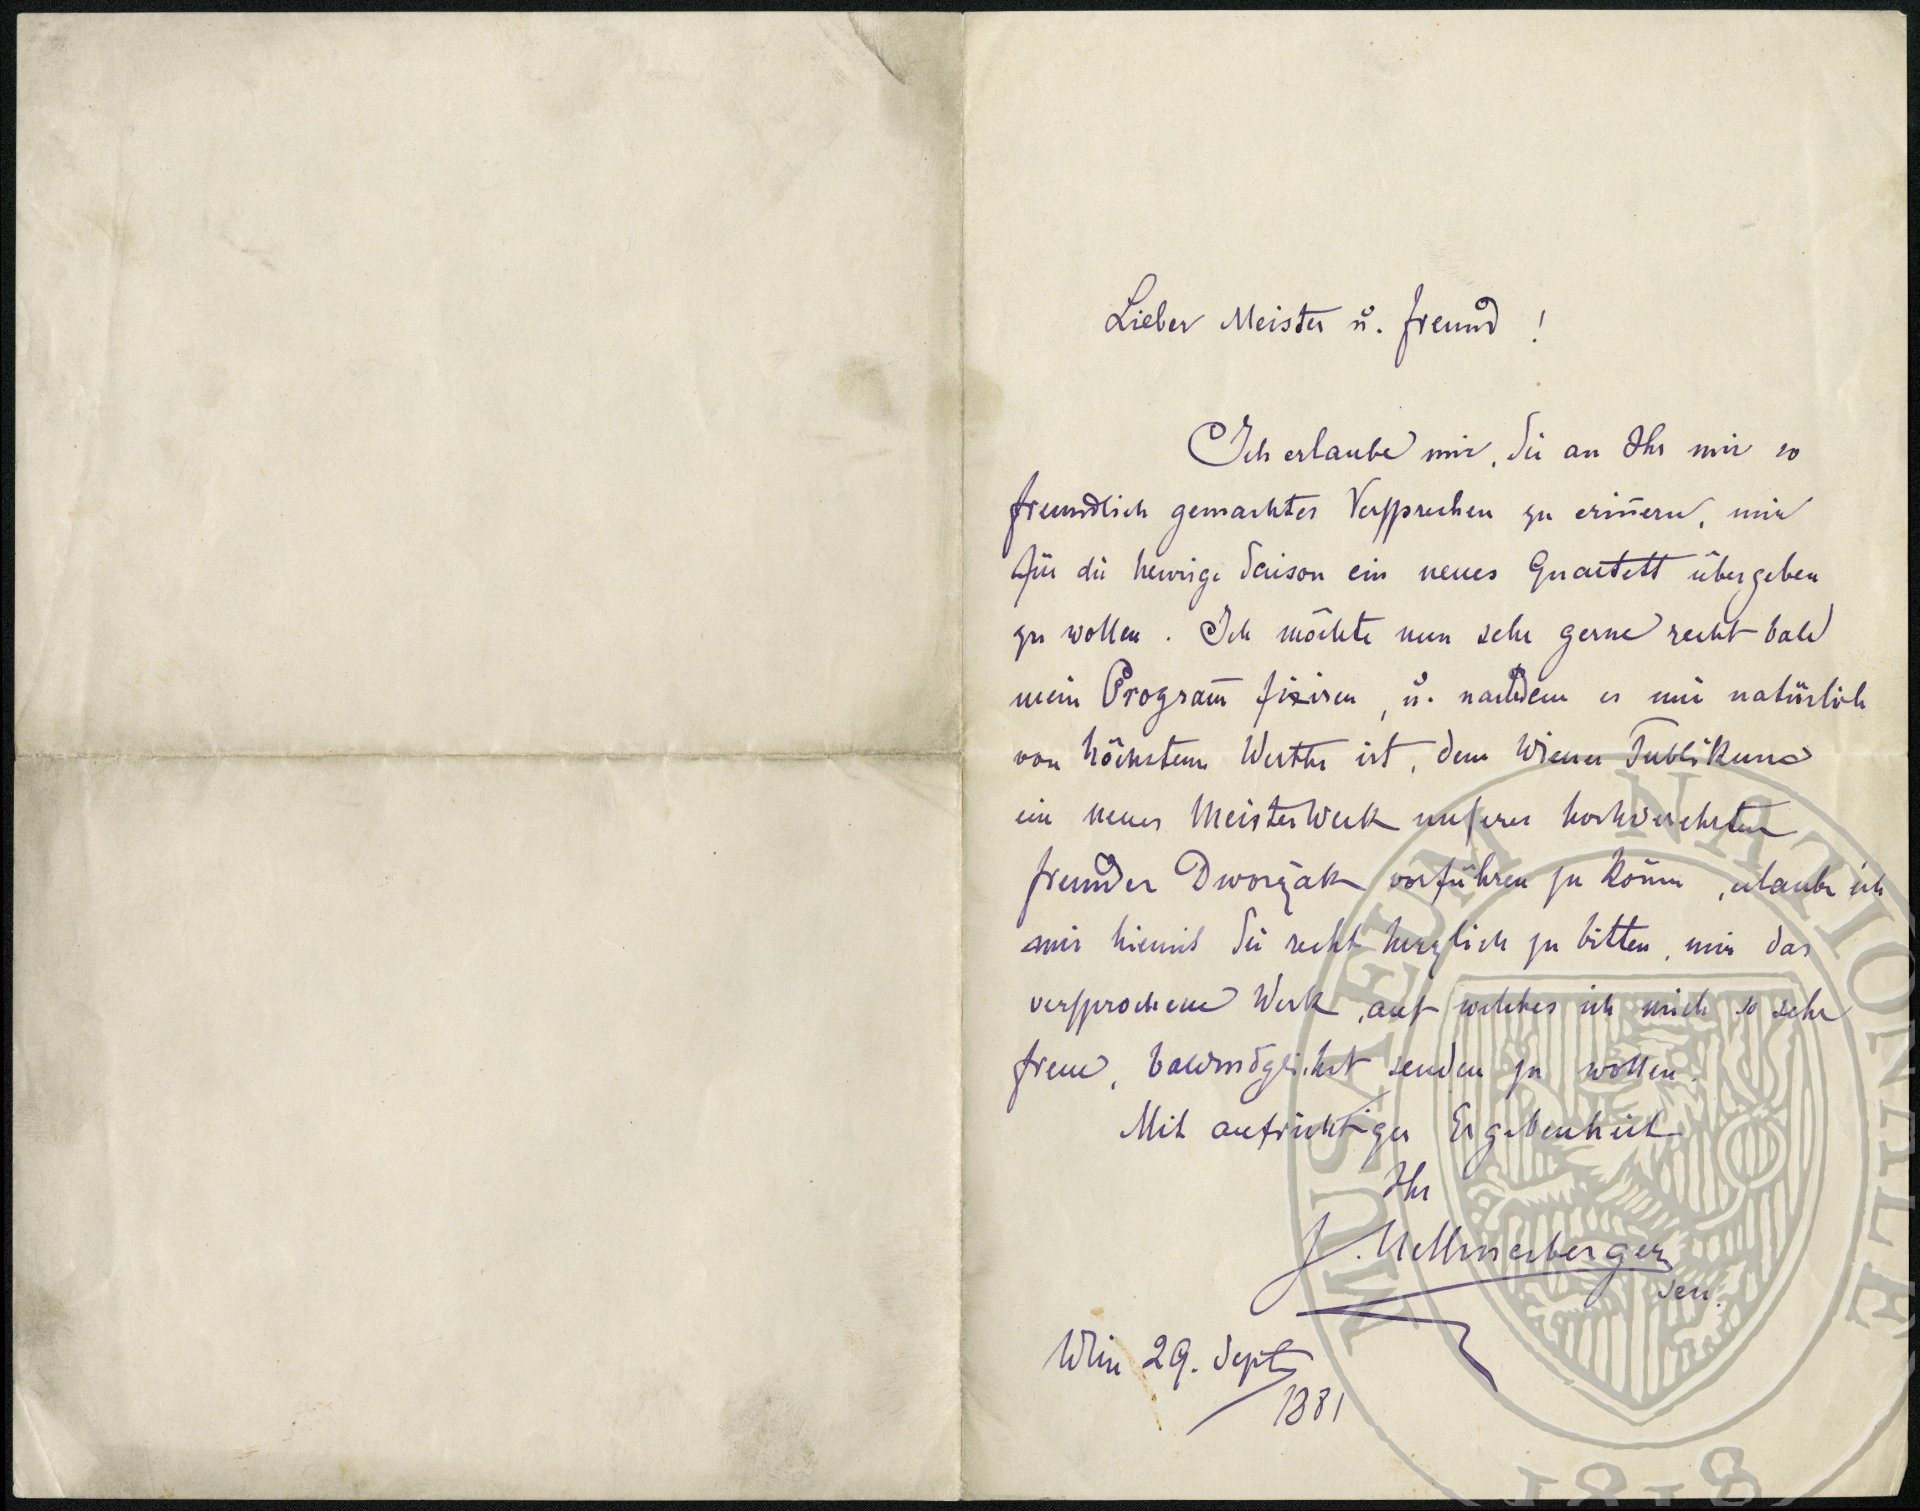 Lieber Meister u. Freund !
Ich erlaube mir, Sie an Ihr mir so
freundlich gemachtes Versprechen zu erin̄ern, mir
für die heurige Saison ein neues Quartett übergeben
zu wollen. Ich möchte nun sehr gerne recht bald
mein Program̄ fixiren, u. nachdem es mir natürlich
von höchstem Werthe ist, dem Wiener Publikum
ein neues Meisterwerk unseres hochverehrten
Freundes Dworžak vorführen zu kön̄en, erlaube ich
mir hiemit Sie recht herzlich zu bitten, mir das
versprochene Werk, auf welches ich mich so sehr
freue, baldmöglichst senden zu wollen.
Mit aufrichtiger Ergebenheit
Ihr
J. Hellmesberger
sen.
Wien 29. Sept
1881
MUSAEUM NATIONALE
1818